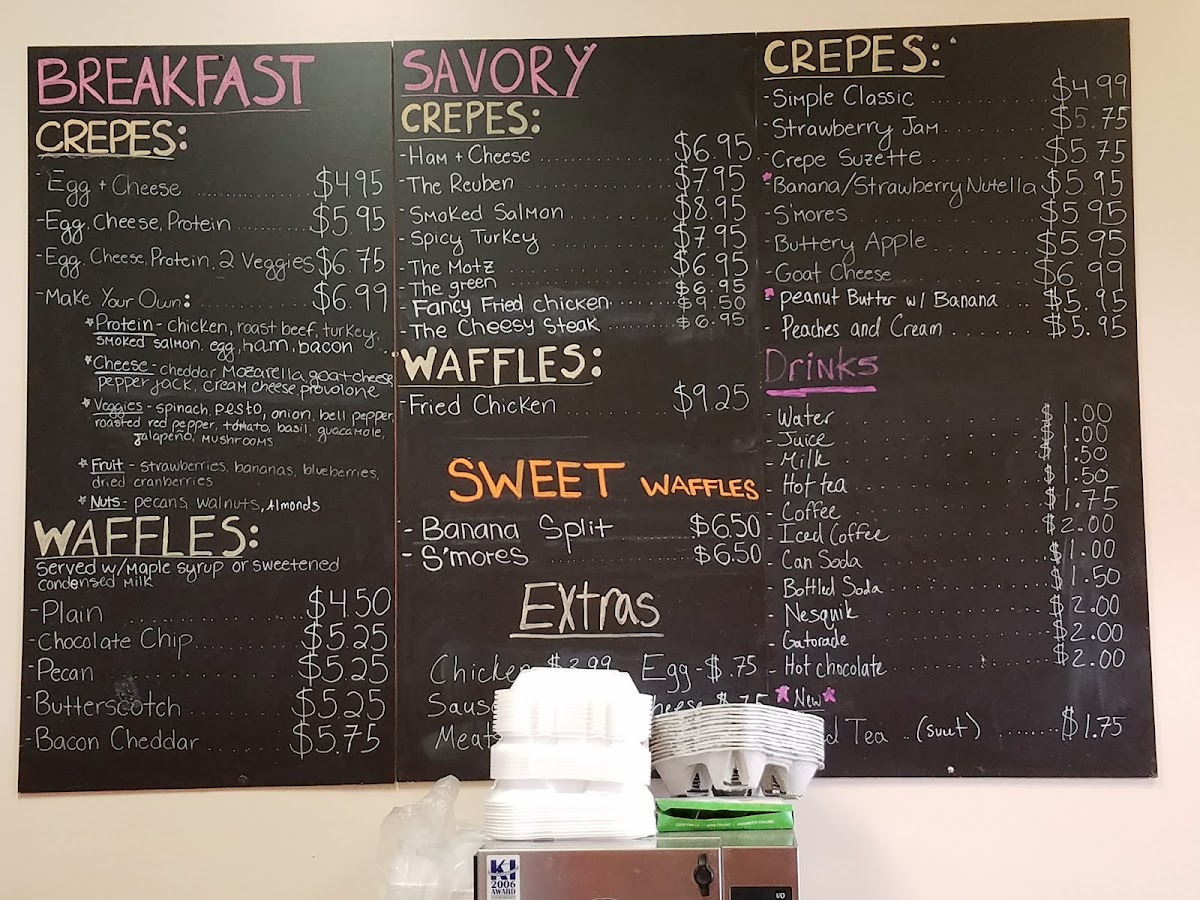 BREAKFAST
CREPES:
- Egg + Cheese ............ $4.95
- Egg, Cheese, Protein ........... $5.95
- Egg, Cheese, Protein, 2 Veggies $6.75
- Make Your Own: $6.99
* Protein - chicken, roast beef, turkey,
smoked salmon, egg, ham, bacon
* Cheese - cheddar, mozarella, goat cheese
pepper jack, cream cheese, provolone
* Veggies - spinach, pesto, onion, bell pepper,
roasted red pepper, tomato, basil, guacamole,
jalapeño, mushrooms
* Fruit - strawberries, bananas, blueberries,
dried cranberries
* Nuts - pecans, walnuts, Almonds
WAFFLES:
Served w/Maple syrup or sweetened
condensed milk
- Plain ............ $4.50
- Chocolate Chip ............ $5.25
- Pecan ............ $5.25
- Butterscotch ............ $5.25
- Bacon Cheddar ............ $5.75
SAVORY
CREPES:
- Ham + Cheese ............ $6.95
- The Reuben ............ $7.95
- Smoked Salmon ............ $8.95
- Spicy Turkey ............ $7.95
- The Motz ............ $6.95
- The green ............ $6.95
- Fancy Fried chicken ............ $9.50
- The Cheesy Steak ............ $6.95
WAFFLES:
- Fried Chicken ............ $9.25
SWEET WAFFLES
- Banana Split ............ $6.50
- S'mores ............ $6.50
Extras
Chicken $2.99 Egg - $.75
CREPES:
- Simple Classic ............ $4.99
- Strawberry Jam ............ $5.75
- Crepe Suzette ............ $5.75
* Banana/Strawberry Nutella $5.95
- S'mores ............ $5.95
- Buttery Apple ............ $5.95
- Goat Cheese ............ $6.99
* peanut Butter w/ Banana ............ $5.95
- Peaches and Cream ............ $5.95
Drinks
- Water ............ $1.00
- Juice ............ $1.00
- Milk ............ $1.50
- Hot tea ............ $1.50
- Coffee ............ $1.75
- Iced Coffee ............ $2.00
- Can Soda ............ $1.00
- Bottled Soda ............ $1.50
- Nesquik ............ $2.00
- Gatorade ............ $2.00
- Hot chocolate ............ $2.00
* New *
Tea (sweet) ........ $1.75
KI
2006
AWARD
I/O